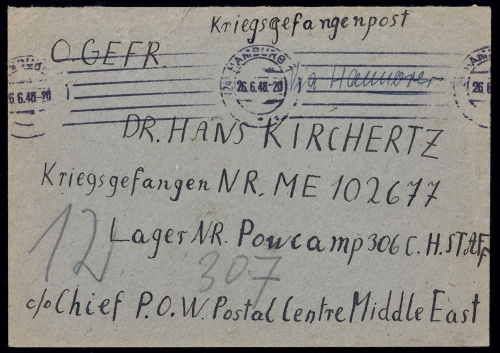 Kriegsgefangenpost
O.GEFR.
HAMBURG
26.6.48-20
via Hannover
DR. HANS KIRCHERTZ
Kriegsgefangen NR. ME 102677
Lager NR. Powcamp 306 C.H. STAFF
12
307
c/o Chief P.O.W. Postal Centre Middle East